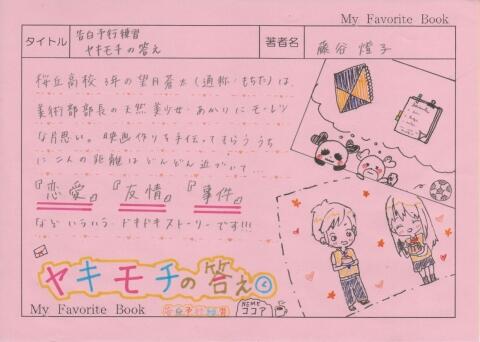 My Favorite Book
タイトル
告白予行練習
ヤキモチの答え
著者名
藤谷 燈子
桜丘高校 3年の望月蒼太(通称・もちた)は、
美術部部長の天然美少女・あかりにモーレツ
な片思い。映画作りを手伝ってもらううち
に二人の距離はどんどん近づいて…
『恋愛』『友情』『事件』
など いろいろ ドキドキストーリーです!!!
ヤキモチの答え
My Favorite Book
告白予行練習
ココア